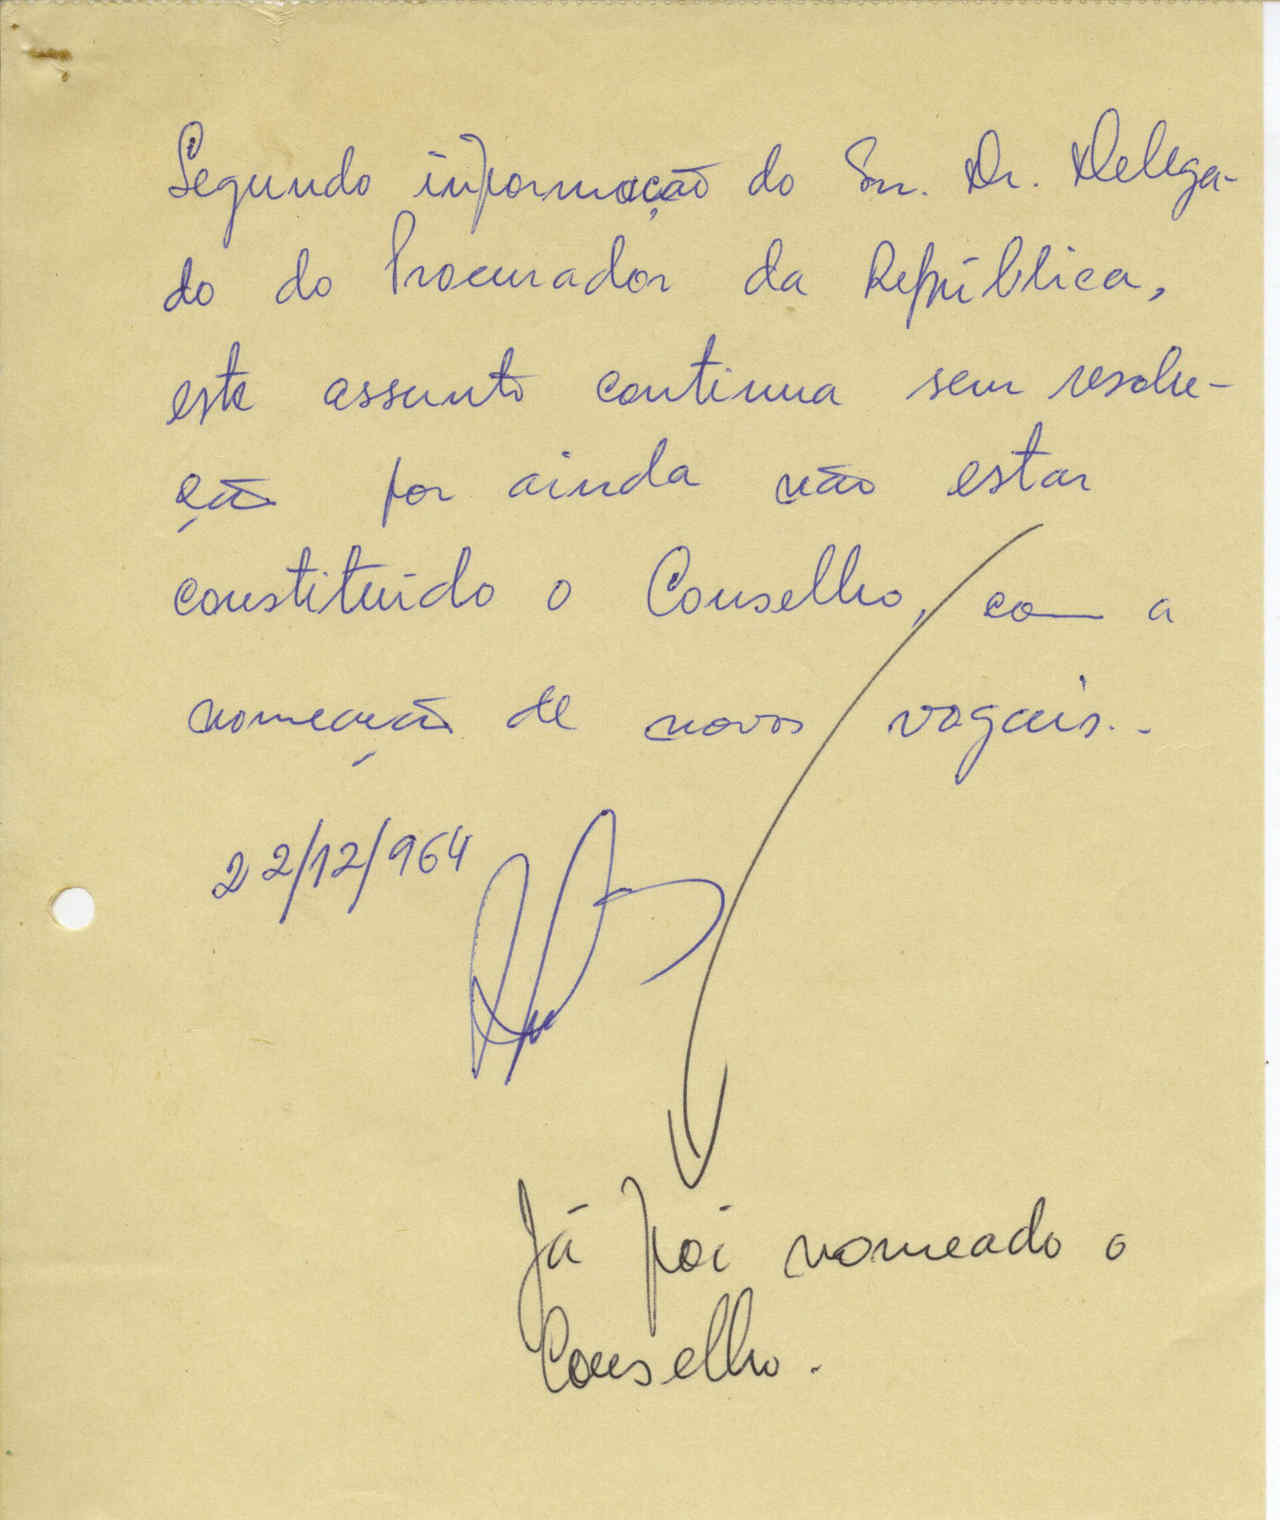 Segundo informação do Snr. Dr. Delega-
do do Procurador da República,
este assunto continua sem resolu-
ção por ainda não estar
constituido o Conselho, com a
nomeação de novos vogais. -
22/12/964
Já foi nomeado o
Conselho.